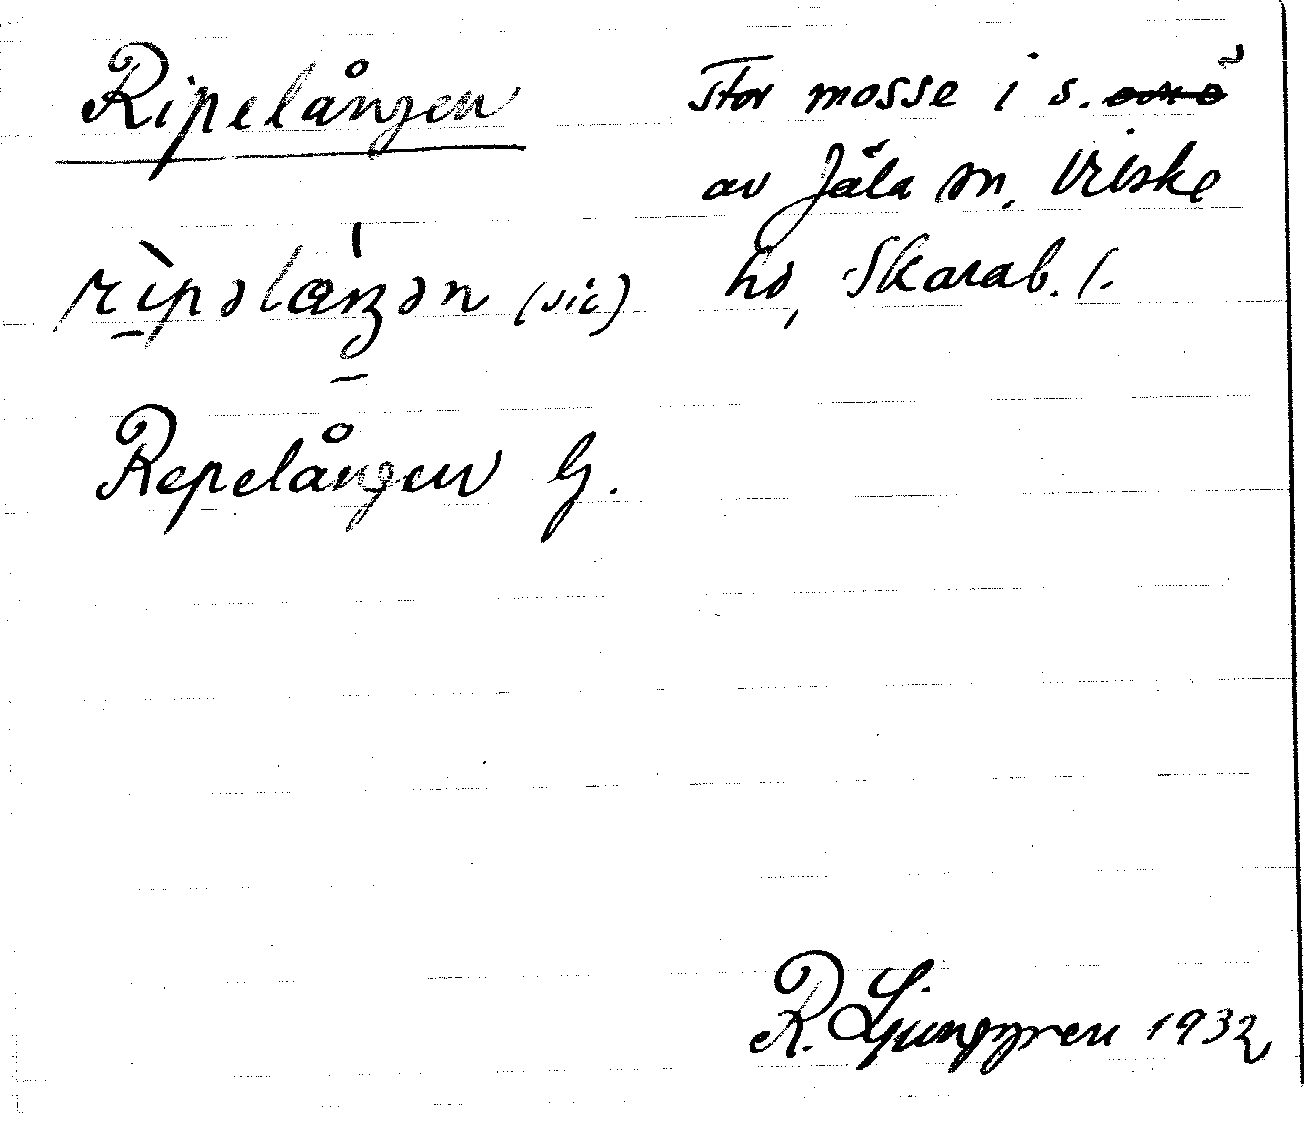 Ripelången
Stor mosse i s.
av Jäla sn. Vilske
hd, Skarab. l.
(sic)
Repelången G.
R. Ljunggren 1932